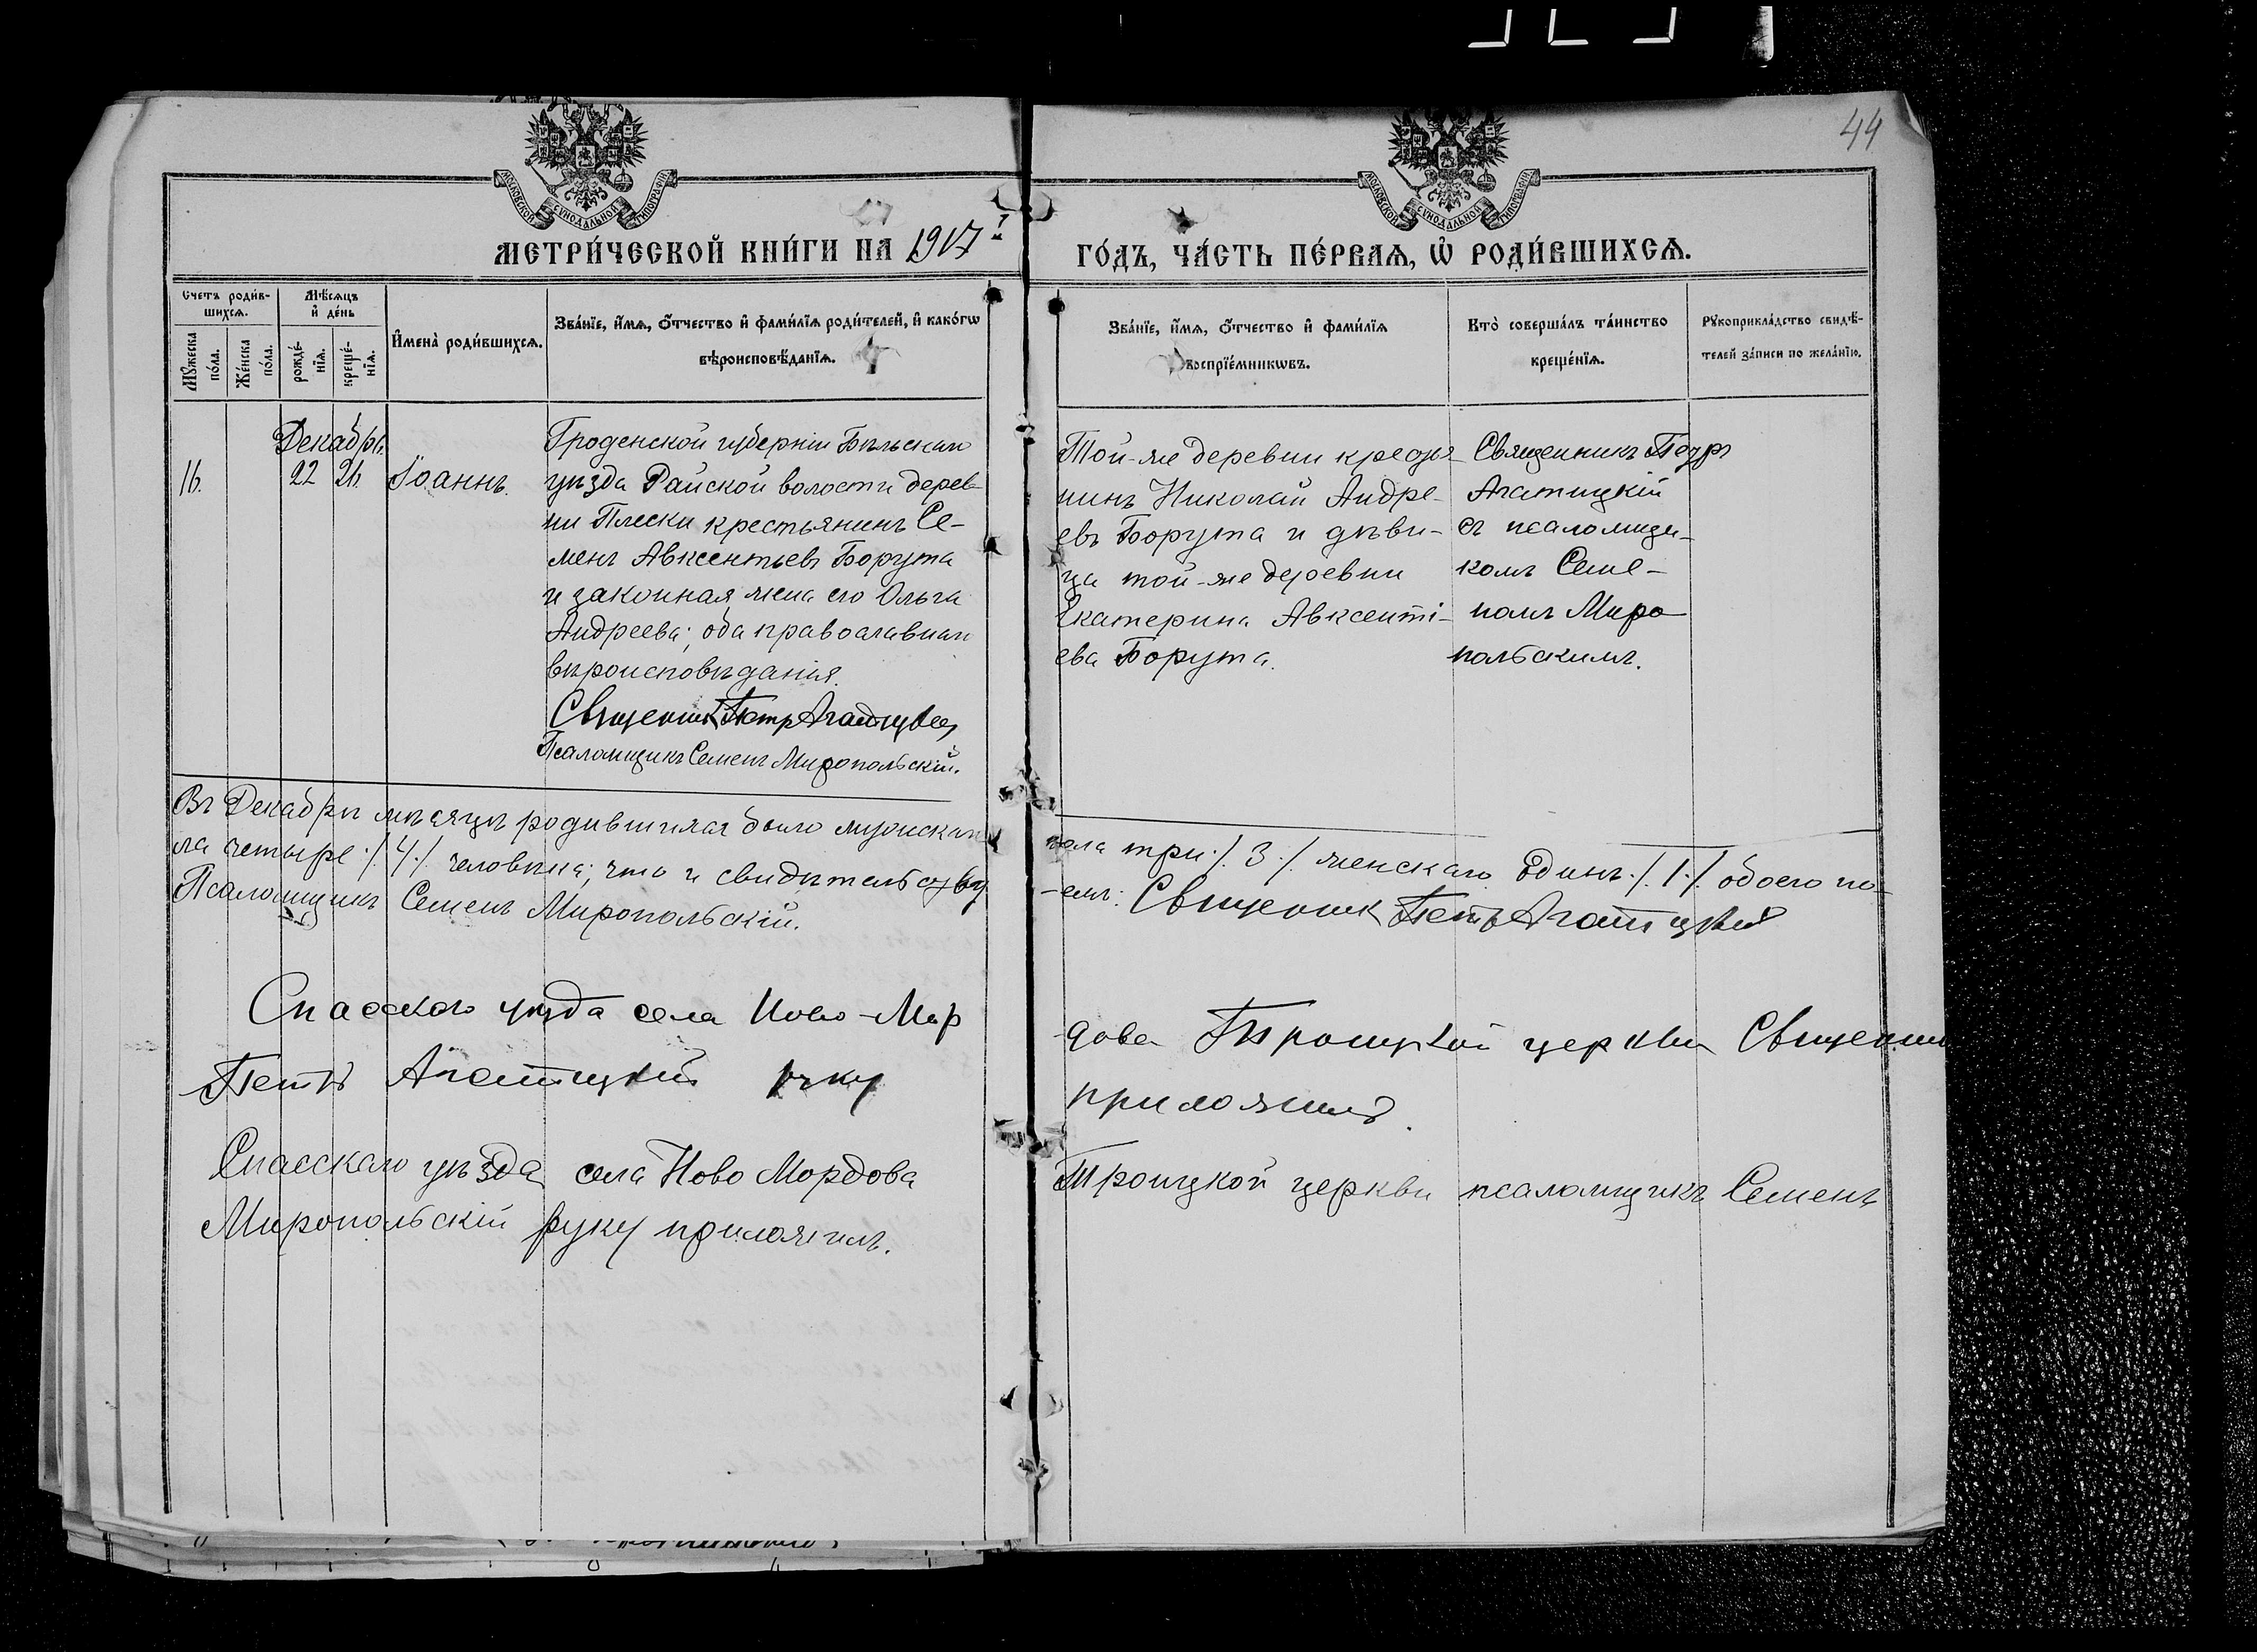 44
МОСКОВСКОЙ СѴНОДАЛЬНОЙ ТИПОГРАФІИ
МОСКОВСКОЙ СѴНОДАЛЬНОЙ ТИПОГРАФІИ
МЕТРИ́ЧЕСКОЙ КНИ́ГИ НА 1917й
ГО́ДЪ, ЧА́СТЬ ПЕ́РВАѦ, Ѡ҆ РОДИ́ВШИХСѦ.
Счетъ роди́в-
шихсѧ.
Мꙋ́жеска по́ла.
Же́нска по́ла.
Мѣ́сѧцъ
и҆ де́нь
рожде́-
нїѧ.
креще́-
нїѧ.
И҆мена̀ роди́вшихсѧ.
Зва́нїе, и҆́мѧ, ѻ҆́тчество и҆ фами́лїѧ роди́телей, и҆ како́гѡ
вѣроисповѣ́данїѧ.
Зва́нїе, и҆́мѧ, ѻ҆́тчество и҆ фами́лїѧ
воспрїе́мникѡвъ.
Кто̀ соверша́лъ та́инство
креще́нїѧ.
Рꙋкоприкла́дство свидѣ́-
телей за́писи по жела́нїю.
Декабрь
16. 22 26. Іоаннъ.
Гроденской губерніи Бѣльскаго
уѣзда Райской волости дерев-
ни Плески крестьянинъ Се-
менъ Авксентьевъ Борута
и законная жена его Ольга
Андреева; оба православнаго
вѣроисповѣданія.
Священникъ Петръ Агатицкій
Псаломщикъ Семенъ Миропольскій.
Той-же деревни крестья-
нинъ Николай Андре-
евъ Борута и дѣви-
ца той-же деревни
Екатерина Авксенті-
ева Борута.
Священникъ Петръ
Агатицкій
съ псаломщи-
комъ Семе-
номъ Миро
польскимъ.
Въ Декабрѣ мѣсяцѣ родившихся было мужскаго пола три ./. 3 ./. женскаго один ./. 1 ./. обоего по-
ла четыре ./. 4 ./. человѣка; что и свидѣтельству-емъ: Священникъ Петръ Агатицкій
Псаломщикъ Семенъ Миропольскій.
Спасского уѣзда села Ново-Мордова Троицкой церкви Священникъ
Петръ Агатицкій руку приложилъ.
Спасскаго уѣзда села Ново Мордова Троицкой церкви псаломщикъ Семенъ
Миропольскій руку приложилъ.